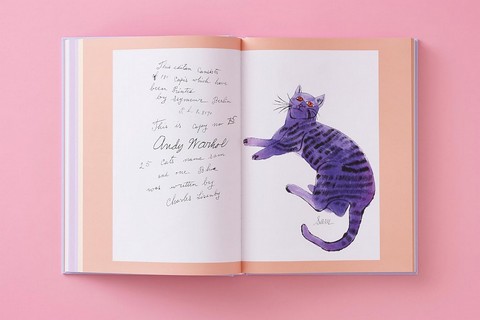 This edition consists
of 190 copies which have
been Printed
by Seymour Berlin
This is copy no 75
Andy Warhol
25 cats name sam
and one Blue
was written by
Charles Lisanby
Sam